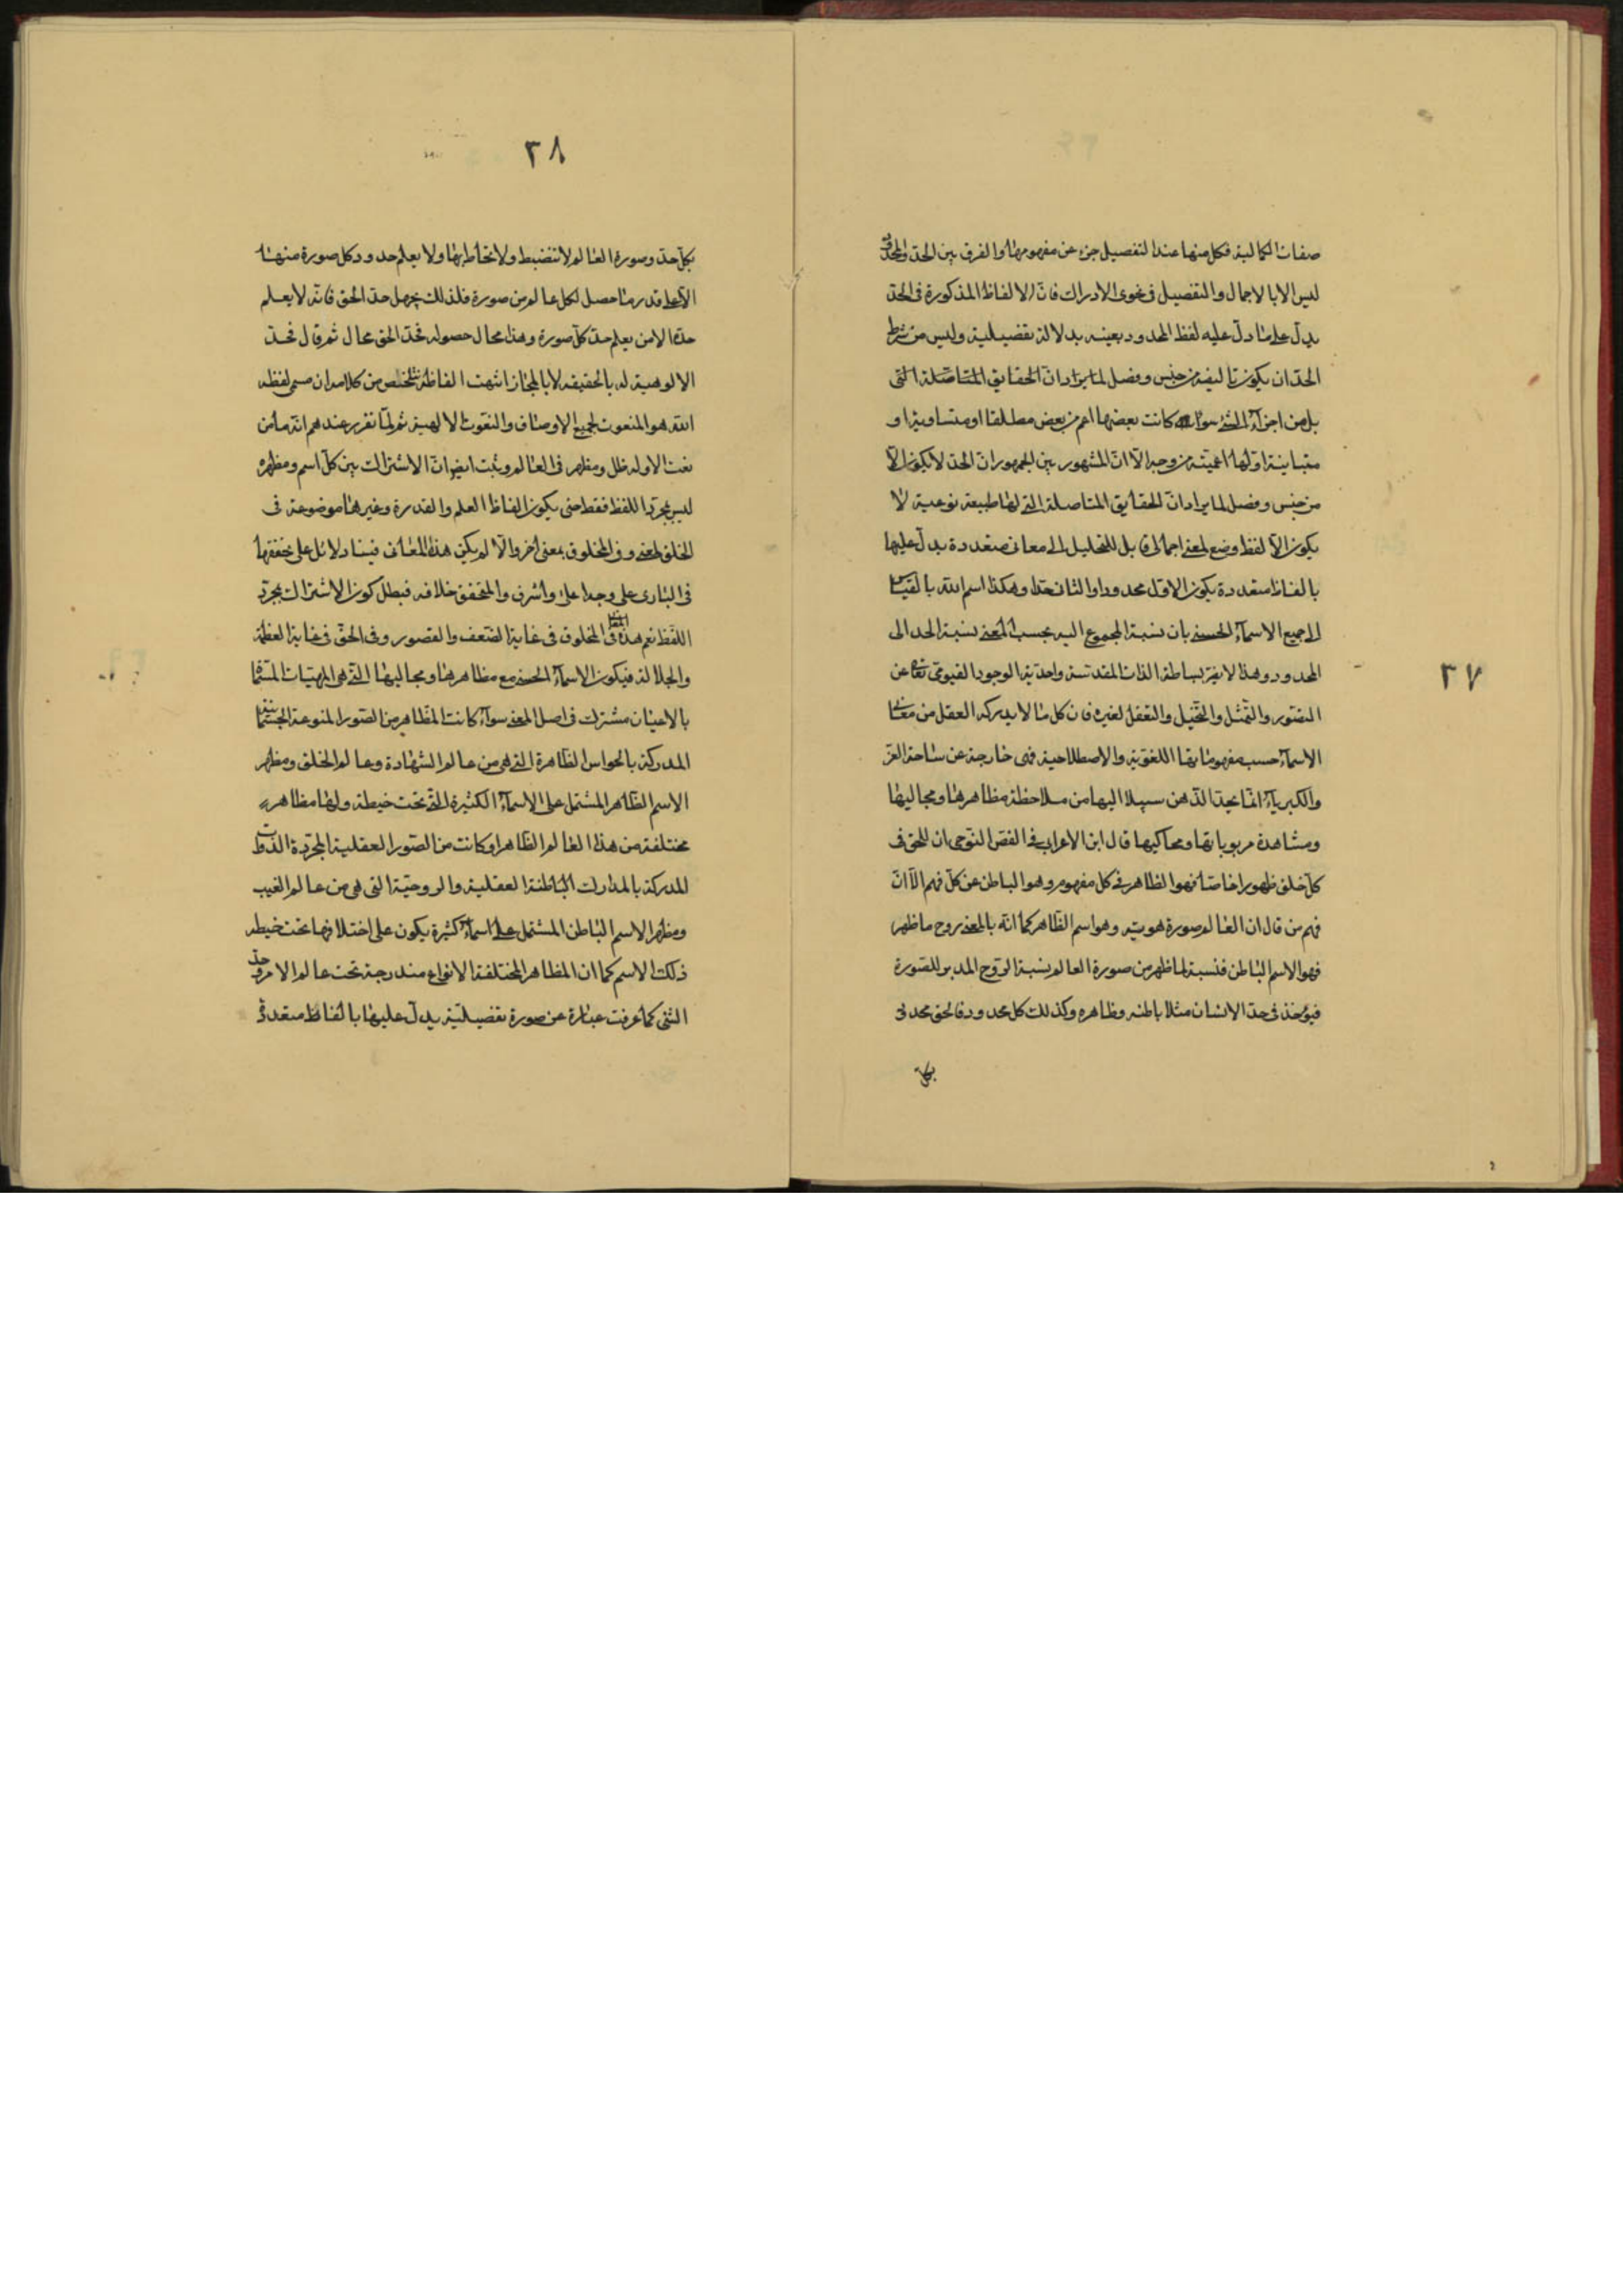 ٢٧
صفات الكمالية فكل منها عند التفصيل جزء عن مفهومها والفرق بين الحد والمحدود
ليس الا بالاجمال والتفصيل فى نحوى الادراك فانّ الالفاظ المذكورة فى الحدّ
يدلّ على ما دلّ عليه لفظ المحدود بعينه بدلالة تفضيلية وليس من شرط
الحدّ ان يكون تاليفه من جنس وفصل لما يراد انّ الحقايق المتاصّلة التى
بل من اجزاء الشئ سواء كانت بعضها اعم من بعض مطلقا او متساوية او
متباينة او لها اعميّة من وجه الّا انّ المشهور بين الجمهور انّ الحد لا يكون الّا
من جنس وفصل لما يراد انّ الحقايق المتاصلة التى لها طبيعة نوعية لا
يكون الّا لفظ وضع لمعنى اجمالى قابل للتحليل الى معانى متعددة يدلّ عليها
بالفاظ متعددة يكون الاوّل محدودا والثانى حدّا وهكذا اسم الله بالقياس
الى جميع الاسماء الحسنى بان نسبة المجموع اليه بحسب المعنى نسبة الحد الى
المحدود وهذا لا بساطة الذات المقدسة واحدية الوجود القيومى تعالى عن
التصور والتمثل والتخيل والتعقل لغيره فان كل ما لا يدركه العقل من معانى
الاسماء حسب مفهوماتها اللغوية والاصطلاحية فهى خارجة عن ساحة العز
والكبرياء انما يجد الذهن سبيلا اليها من ملاحظة مظاهرها ومجاليها
ومشاهدة مربوباتها ومحاكيها قال ابن الاعرابى فى الفص النوحى ان للحق فى
كل خلق ظهورا خاصا فهو الظاهر فى كل مفهوم وهو الباطن عن كل فهم الّا انّ
فهم من قال ان العالم صورة هويته وهو اسم الظاهر كما انّه بالمعنى روح ما ظهر
فهو الاسم الباطن فنسبة لما ظهر من صورة العالم نسبة الروح المدبر للصورة
فيؤخذ فى حدّ الانسان مثلا باطنه وظاهره وكذلك كل محدود فالحق محدود
بكل
٢٨
بكلّ حدّ وصورة العالم لا تنضبط ولا تحاط بها ولا يعلم حدود كل صورة منها
الا على قدر ما حصل لكل عالم من صورة فلذلك يجهل حدّ الحق فانّه لا يعلم
حدّه الا من يعلم حدّ كلّ صورة وهذا محال حصوله فحدّ الحق محال ثم قال فحدّ
الالوهية له بالحقيقه لا بالمجاز انتهت الفاظه فتلخص من كلامه ان مسمى لفظه
الله هو المنعوت لجميع الاوصاف والنعوت الالهية ثم لما تقرر عندهم انه ما من
نعت الا وله ظل ومظهر فى العالم وثبت ايضا انّ الاشتراك بين كلّ اسم ومظهره
ليس بمجرّد اللفظ فقط حتى يكون الفاظ العلم والقدرة وغيرها موضوعة فى
الخلق لمعنى وفى المخلوق بمعنى اخر والّا لم يكن هذه المعانى فينا دلائل على تحققها
فى البارى على وجه اعلى واشرف والمتحقق خلافه فبطل كون الاشتراك بمجرّد
اللفظ نعم هذه فى المخلوق فى غاية الضعف والقصور وفى الحق فى غاية العظمة
والجلالة فيكون الاسماء الحسنى مع مظاهرها ومجاليها التى هى المهيّات المسمّاة
بالاعيان مشترك فى اصل المعنى سواء كانت المظاهر من الصور المنوعة الجسمانية
المدركة بالحواس الظاهرة التى هى من عالم الشهادة وعالم الخلق ومظهر
الاسم الظاهر المشتمل على الاسماء الكثيرة التى تحت حيطته ولها مظاهر
مختلفة من هذا العالم الظاهر او كانت من الصور العقلية المجرّدة الذوات
المدركة بالمدارك الباطنة العقلية والروحيّة التى هى من عالم الغيب
ومظهر الاسم الباطن المشتمل على اسماء كثيرة يكون على اختلافها تحت حيطه
ذلك الاسم كما ان المظاهر المختلفة الانواع مندرجة تحت عالم الامر وحدّ
الشئ كما عرفت عبارة عن صورة تفضيليّة يدلّ عليها بالفاظ متعددة